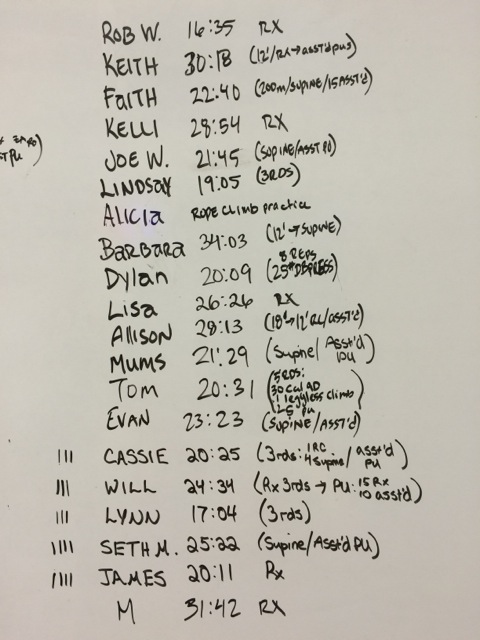 ROB W. 16:35 RX
KEITH 30:18 (12'/RX→asst'd pus)
FAITH 22:40 (200m/SUPINE/15 ASST'd)
KELLI 28:54 RX
PU)
JOE W. 21:45 (SUPINE/ASST PU)
LINDSAY 19:05 (3RDS)
ALICIA ROPE CLIMB practice
BARBARA 34:03 (12'→SUPINE)
Dylan 20:09 (8 REPS
25# DBPRESS)
Lisa 26:26 RX
Allison 28:13 (18'→12' RC/ASST'd)
Mums 21:29 (Supine/ Asst'd
PU)
Tom 20:31 (5 RDS:
30 Cal AD
1 legless climb
12-5 PU)
EVAN 23:23 (SUPINE/ASST'd)
||| CASSIE 20:25 (3rds: 1 RC
4 Supine/ asst'd
PU)
||| WILL 24:34 (Rx 3rds → PU: 15 Rx
10 asst'd)
||| LYNN 17:04 (3rds)
|||| SETH M. 25:22 (Supine/Asst'd PU)
|||| JAMES 20:11 Rx
M 31:42 RX